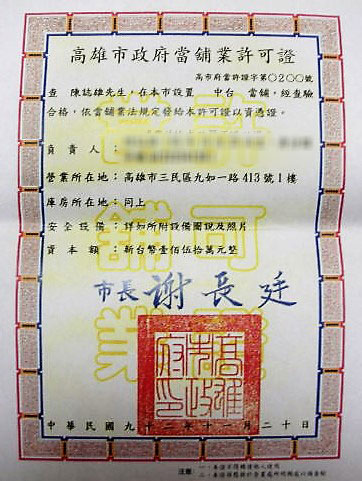 高雄市政府當舖業許可證
高市府當許證字第0200號
查 陳誌雄先生，在本市設置 中台 當舖，經查驗
合格，依當舖業法規定發給本許可證以資憑證。
負責人：
營業所在地：高雄市三民區九如一路413號1樓
庫房所在地：同上
安全設備：詳如所附設備圖說及照片
資本額：新台幣壹佰伍拾萬元整
市長 謝長廷
高雄市政府印
中華民國九十二年十一月二十日
許可
當舖業
注意